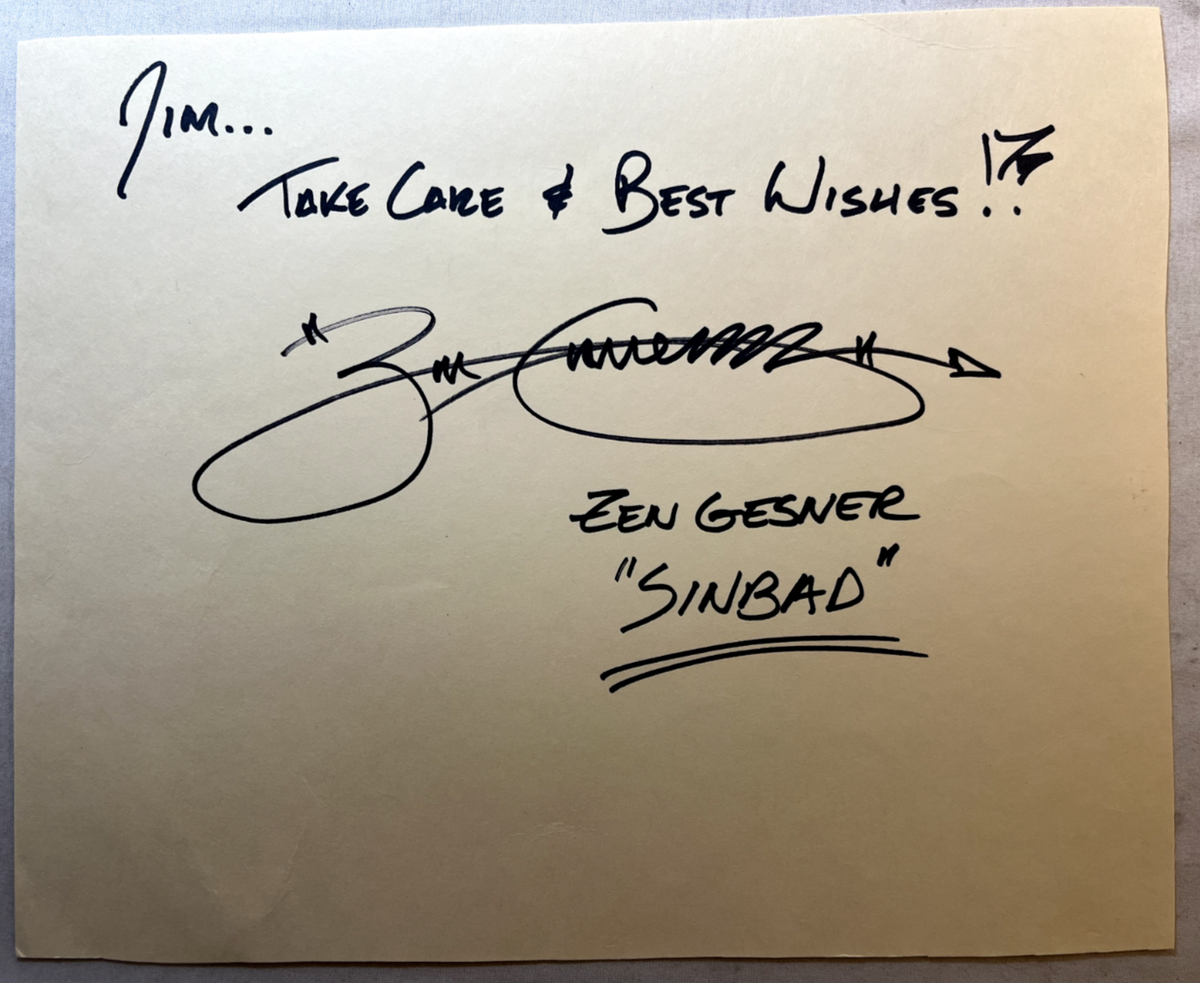 Jim...
Take Care & Best Wishes!!
"Zen Gesner"
ZEN GESNER
"SINBAD"